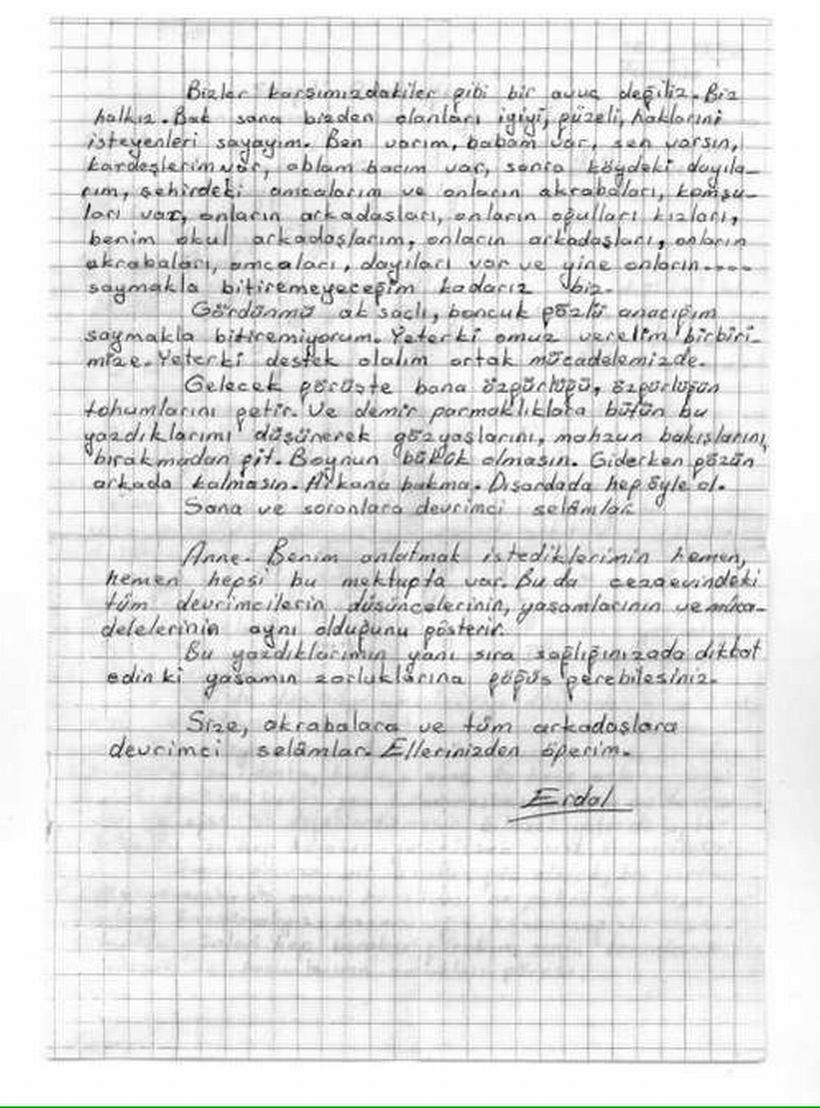 Bizler karşımızdakiler gibi bir avuç değiliz. Biz
halkız. Bak sana bizden olanları iyiyi, güzeli, haklarını
isteyenleri sayayım. Ben varım, babam var, sen varsın,
kardeşlerim var, ablam bacım var, sonra köydeki dayıla-
rım, şehirdeki amcalarım ve onların akrabaları, komşu-
ları var, onların arkadaşları, onların oğulları kızları,
benim okul arkadaşlarım, onların arkadaşları, onların
akrabaları, amcaları, dayıları var ve yine onların....
saymakla bitiremeyeceğim kadarız biz.
Gördünmü ak saçlı, boncuk gözlü anacığım
saymakla bitiremiyorum. Yeterki omuz verelim birbiri-
mize. Yeterki destek olalım ortak mücadelemizde.
Gelecek görüşte bana özgürlüğü, özgürlüğün
tohumlarını getir. Ve demir parmaklıklara bütün bu
yazdıklarımı düşünerek gözyaşlarını, mahzun bakışlarını,
bırakmadan git. Boynun bükük olmasın. Giderken gözün
arkada kalmasın. Arkana bakma. Dışardada hep öyle ol.
Sana ve soranlara devrimci selâmlar.
Anne. Benim anlatmak istediklerimin hemen,
hemen hepsi bu mektupta var. Bu da cezaevindeki
tüm devrimcilerin düşüncelerinin, yaşamlarının ve müca-
delelerinin aynı olduğunu gösterir.
Bu yazdıklarımın yanı sıra sağlığınızada dikkat
edin ki yaşamın zorluklarına göğüs gerebilesiniz.
Size, akrabalara ve tüm arkadaşlara
devrimci selâmlar. Ellerinizden öperim.
Erdal